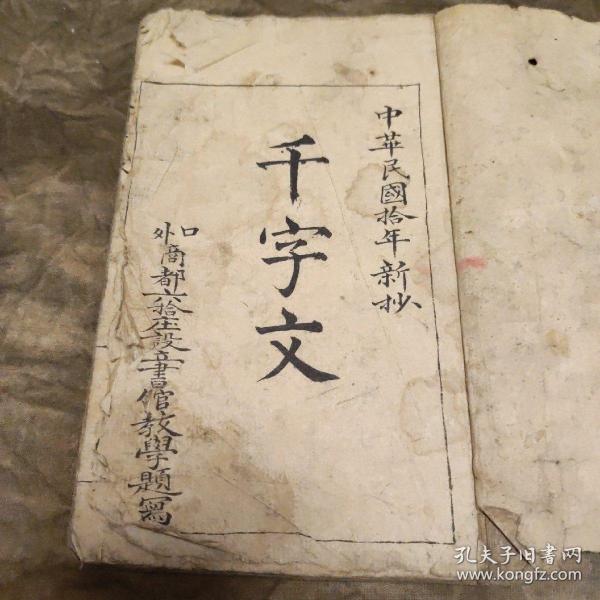 中華民國拾年新抄
千字文
口外商都六拾庄設立書倌教學題寫
孔夫子旧书网
www.kongfz.com